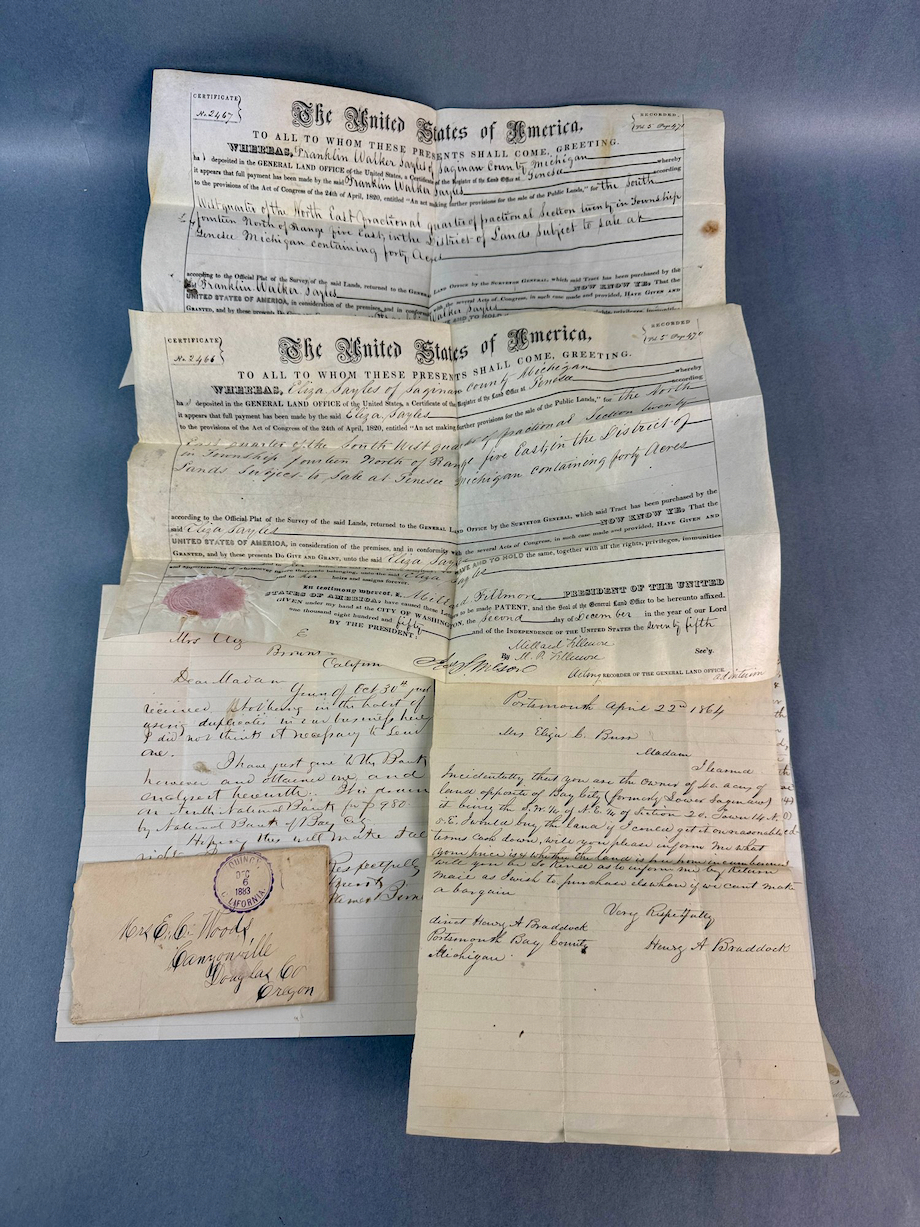 CERTIFICATE
No. 2467
The United States of America,
RECORDED
Vol 5 Page 471
TO ALL TO WHOM THESE PRESENTS SHALL COME, GREETING.
WHEREAS, Franklin Walker Sayles of Saginaw County Michigan
ha s deposited in the GENERAL LAND OFFICE of the United States, a Certificate of the Register of the Land Office at Genesee whereby
it appears that full payment has been made by the said Franklin Walker Sayles according
to the provisions of the Act of Congress of the 24th of April, 1820, entitled "An act making further provisions for the sale of the Public Lands," for the South
West quarter of the North East fractional quarter of fractional Section twenty in Township
fourteen North of Range five East, in the District of Lands Subject to sale at
Genesee Michigan containing forty Acres
according to the Official Plat of the Survey of the said Lands, returned to the GENERAL LAND OFFICE by the SURVEYOR GENERAL, which said Tract has been purchased by the
by Franklin Walker Sayles NOW KNOW YE, That the
UNITED STATES OF AMERICA, in consideration of the premises, and in conformity with the several Acts of Congress, in such case made and provided, HAVE GIVEN AND
GRANTED, and by these presents Walker Sayles
CERTIFICATE
No. 2466
The United States of America,
RECORDED
Vol 5 Page 470
TO ALL TO WHOM THESE PRESENTS SHALL COME, GREETING.
WHEREAS, Eliza Sayles of Saginaw County Michigan
ha s deposited in the GENERAL LAND OFFICE of the United States, a Certificate of the Register of the Land Office at Genesee whereby
it appears that full payment has been made by the said Eliza Sayles according
to the provisions of the Act of Congress of the 24th of April, 1820, entitled "An act making further provisions for the sale of the Public Lands," for the North
East quarter of the South West quarter of fractional Section twenty
in Township fourteen North of Range five East, in the District of
Lands Subject to Sale at Genesee Michigan containing forty Acres
according to the Official Plat of the Survey of the said Lands, returned to the GENERAL LAND OFFICE by the SURVEYOR GENERAL, which said Tract has been purchased by the
said Eliza Sayles NOW KNOW YE, That the
UNITED STATES OF AMERICA, in consideration of the premises, and in conformity with the several Acts of Congress, in such case made and provided, HAVE GIVEN AND
GRANTED, and by these presents DO GIVE AND GRANT, unto the said Eliza Sayles
HAVE AND TO HOLD the same, together with all the rights, privileges, immunities
and to her heirs and assigns forever.
In testimony whereof, I, Millard Fillmore PRESIDENT OF THE UNITED
STATES OF AMERICA, have caused these Letters to be made PATENT, and the Seal of the General Land Office to be hereunto affixed.
GIVEN under my hand at the CITY OF WASHINGTON, the Second day of December in the year of our Lord
one thousand eight hundred and fifty and of the INDEPENDENCE OF THE UNITED STATES the Seventy fifth
BY THE PRESIDENT: Millard Fillmore
By M. P. Fillmore Sec'y.
Acting RECORDER OF THE GENERAL LAND OFFICE
ad interim
Mrs Eliz
E
Californ
Dear Madam
Yours of Oct 30th just
received Not being in the habit of
using duplicates in our business here
I did not think it necessary to send
one.
I have just gone to the Bank
however and obtained one and
enclose it herewith. It is drawn
on Tenth National Bank for $980
by National Bank of Bay City
Hoping this will make it all
right
Respectfully
QUINCY
DEC
6
1883
CALIFORNIA
Mrs E. C. Woods
Canyonville
Douglas Co
Oregon
Portsmouth April 22nd 1864
Mrs Eliza C. Burr
Madam
I learned
Incidentally that you are the owner of 40. acres of
land opposite of Bay City (formerly Lower Saginaw)
it being the S. W. 1/4 of N. E. 1/4 of Section 20. Town 14 N. of
5. E. I would buy the land if I could get it on reasonable
terms cash down, will you please inform me what
your price is & whether the land is free from incumbrance
will you be so kind as to inform me by Return
mail as I wish to purchase elsewhere if we cant make
a bargain
Very Respectfully
Henry A Braddock
direct Henry A Braddock
Portsmouth Bay County
Michigan.